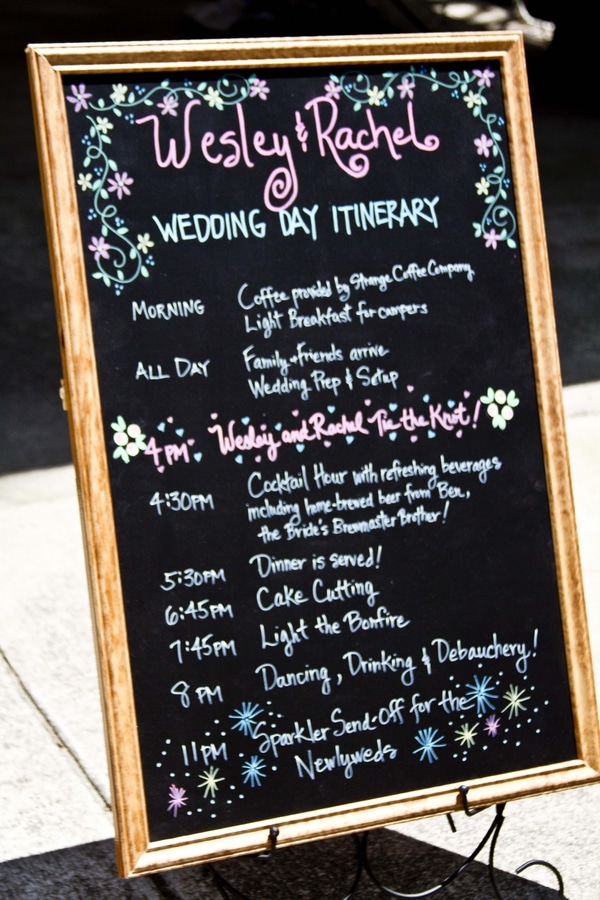 Wesley & Rachel
WEDDING DAY ITINERARY
MORNING Coffee provided by Strange Coffee Company
Light Breakfast for campers
ALL DAY Family + friends arrive
Wedding Prep & Setup
4PM Wesley and Rachel Tie the Knot!
4:30PM Cocktail Hour with refreshing beverages
including home-brewed beer from Ben,
the Bride's Brewmaster Brother!
5:30PM Dinner is served!
6:45PM Cake Cutting
7:45PM Light the Bonfire
8PM Dancing, Drinking & Debauchery!
11PM Sparkler Send-Off for the
Newlyweds